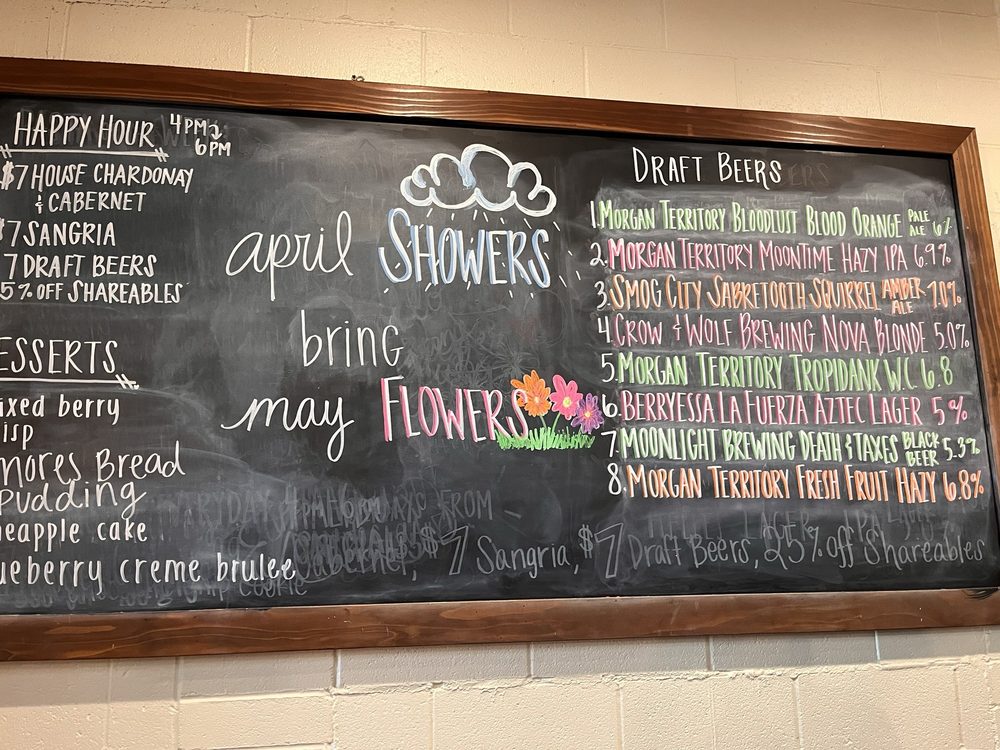 HAPPY HOUR 4PM
6PM
$7 HOUSE CHARDONAY
& CABERNET
$7 SANGRIA
7 DRAFT BEERS
5% OFF SHAREABLES
ESSERTS
ixed berry
isp
mores Bread
Pudding
neapple cake
ueberry creme brulee
april SHOWERS
bring
may FLOWERS
DRAFT BEERS
1. MORGAN TERRITORY BLOODLUST BLOOD ORANGE PALE ALE 6%
2. MORGAN TERRITORY MOONTIME HAZY IPA 6.9%
3. SMOG CITY SABRETOOTH SQUIRREL AMBER ALE 7.0%
4. CROW & WOLF BREWING NOVA BLONDE 5.0%
5. MORGAN TERRITORY TROPIDANK W.C. 6.8
6. BERRYESSA LA FUERZA AZTEC LAGER 5%
7. MOONLIGHT BREWING DEATH & TAXES BLACK BEER 5.3%
8. MORGAN TERRITORY FRESH FRUIT HAZY 6.8%
Cabernet, $7 Sangria, $7 Draft Beers, 25% off Shareables